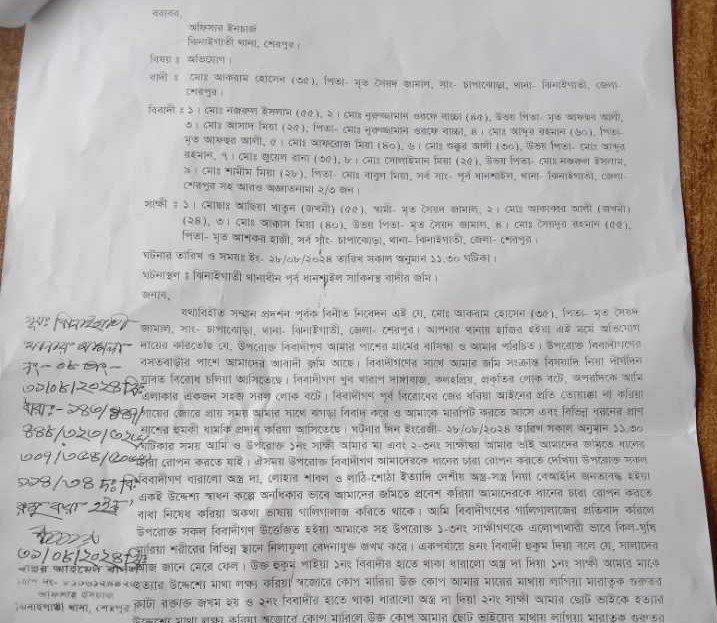 বরাবর,
অফিসার ইনচার্জ
ঝিনাইগাতী থানা, শেরপুর।
বিষয় ঃ অভিযোগ।
বাদী ঃ মোঃ আকরাম হোসেন (৩৫), পিতা- মৃত সৈয়দ জামাল, সাং- চাপাঝোড়া, থানা- ঝিনাইগাতী, জেলা-
শেরপুর।
বিবাদী ঃ ১। মোঃ নজরুল ইসলাম (৫৫), ২। মোঃ নুরুজ্জামান ওরফে বাচ্চা (৪৫), উভয় পিতা- মৃত আফছর আলী,
৩। মোঃ আসাদ মিয়া (২৫), পিতা- মোঃ নুরুজ্জামান ওরফে বাচ্চা, ৪। মোঃ আব্দুর রহমান (৬০), পিতা-
মৃত আফছর আলী, ৫। মোঃ আফরোজ মিয়া (৪০), ৬। মোঃ শুক্কুর আলী (৩০), উভয় পিতা- মোঃ আব্দুর
রহমান, ৭। মোঃ জুয়েল রানা (৩৫), ৮। মোঃ সোলাইমান মিয়া (২৫), উভয় পিতা- মোঃ নজরুল ইসলাম,
৯। মোঃ শামীম মিয়া (২৮), পিতা- মোঃ বাবুল মিয়া, সর্ব সাং- পূর্ব ধানশাইল, থানা- ঝিনাইগাতী, জেলা-
শেরপুর সহ আরও অজ্ঞাতনামা ২/৩ জন।
সাক্ষী ঃ ১। মোছাঃ আছিয়া খাতুন (জখমী) (৫৫), স্বামী- মৃত সৈয়দ জামাল, ২। মোঃ আকাব্বর আলী (জখমী)
(২৪), ৩। মোঃ আক্কাস মিয়া (৪০), উভয় পিতা- মৃত সৈয়দ জামাল, ৪। মোঃ সৈয়দুর রহমান (৫৫),
পিতা- মৃত আশকর হাজী, সর্ব সাং- চাপাঝোড়া, থানা- ঝিনাইগাতী, জেলা- শেরপুর।
ঘটনার তারিখ ও সময়ঃ ইং- ২৮/০৮/২০২৪ তারিখ সকাল অনুমান ১১.৩০ ঘটিকা।
ঘটনাস্থল ঃ ঝিনাইগাতী থানাধীন পূর্ব ধানশাইল সাকিনস্থ বাদীর জমি।
জনাব,
যথাবিহীত সম্মান প্রদর্শন পূর্বক বিনীত নিবেদন এই যে, মোঃ আকরাম হোসেন (৩৫), পিতা- মৃত সৈয়দ
জামাল, সাং- চাপাঝোড়া, থানা- ঝিনাইগাতী, জেলা- শেরপুর। আপনার থানায় হাজির হইয়া এই মর্মে অভিযোগ
দায়ের করিতেছি যে, উপরোক্ত বিবাদীগণ আমার পাশের গ্রামের বাসিন্দা ও আমার পরিচিত। উপরোক্ত বিবাদীগণের
বসতবাড়ীর পাশে আমাদের আবাদী জমি আছে। বিবাদীগণের সাথে আমার জমি সংক্রান্ত বিষয়াদি নিয়া দীর্ঘদিন
যাবত বিরোধ চলিয়া আসিতেছে। বিবাদীগণ খুব খারাপ দাঙ্গাবাজ, কলহপ্রিয়, প্রকৃতির লোক বটে, অপরদিকে আমি
এলাকার একজন সহজ সরল লোক বটে। বিবাদীগণ পূর্ব বিরোধের জের ধরিয়া আইনের প্রতি তোয়াক্কা না করিয়া
গায়ের জোরে প্রায় সময় আমার সাথে ঝগড়া বিবাদ করে ও আমাকে মারপিট করতে আসে এবং বিভিন্ন ধরনের প্রাণ
নাশের হুমকী ধামকি প্রদান করিয়া আসিতেছে। ঘটনার দিন ইংরেজী- ২৮/০৮/২০২৪ তারিখ সকাল অনুমান ১১.৩০
ঘটিকার সময় আমি ও উপরোক্ত ১নং সাক্ষী আমার মা এবং ২-৩নং সাক্ষীদ্বয় আমার ভাই আমাদের জমিতে ধানের
চারা রোপন করতে যাই। ঐসময় উপরোক্ত বিবাদীগণ আমাদেরকে ধানের চারা রোপন করতে দেখিয়া উপরোক্ত সকল
বিবাদীগণ ধারালো অস্ত্র দা, লোহার শাবল ও লাঠি-শোঠা ইত্যাদি দেশীয় অস্ত্র-সস্ত্র নিয়া বেআইনি জনতাবদ্ধ হইয়া
একই উদ্দেশ্য সাধন কল্পে অনধিকার ভাবে আমাদের জমিতে প্রবেশ করিয়া আমাদেরকে ধানের চারা রোপন করতে
বাধা নিষেধ করিয়া অকথ্য ভাষায় গালিগালাজ করিতে থাকে। আমি বিবাদীগণের গালিগালাজের প্রতিবাদ করিলে
উপরোক্ত সকল বিবাদীগণ উত্তেজিত হইয়া আমাকে সহ উপরোক্ত ১-৩নং সাক্ষীগণকে এলোপাথারী ভাবে কিল-ঘুষি
মারিয়া শরীরের বিভিন্ন স্থানে নিলাফুলা বেদনাযুক্ত জখম করে। একপর্যায়ে ৪নং বিবাদী হুকুম দিয়া বলে যে, সালাদের
জানে মেরে ফেল। উক্ত হুকুম পাইয়া ১নং বিবাদীর হাতে থাকা ধারালো অস্ত্র দা দিয়া ১নং সাক্ষী আমার মাকে
হত্যার উদ্দেশ্যে মাথা লক্ষ্য করিয়া স্বজোরে কোপ মারিলে উক্ত কোপ আমার মায়ের মাথায় লাগিয়া মারাত্নক গুরুতর
কাটা রক্তাক্ত জখম হয় ও ২নং বিবাদীর হাতে থাকা ধারালো অস্ত্র দা দিয়া ২নং সাক্ষী আমার ছোট ভাইকে হত্যার
উদ্দেশ্যে মাথা লক্ষ্য করিয়া স্বজোরে কোপ মারিলে উক্ত কোপ আমার ছোট ভাইয়ের মাথায় লাগিয়া মারাত্নক গুরুতর
৩১/০৮/২০২৪
ধারা:- ১৪৩/৪৪৭/
৩০৭/
১১৪/৩৪ দঃ বিঃ
রুজু করা হইল
৩১/০৮/২০২৪
ঝিনাইগাতী থানা, শেরপুর